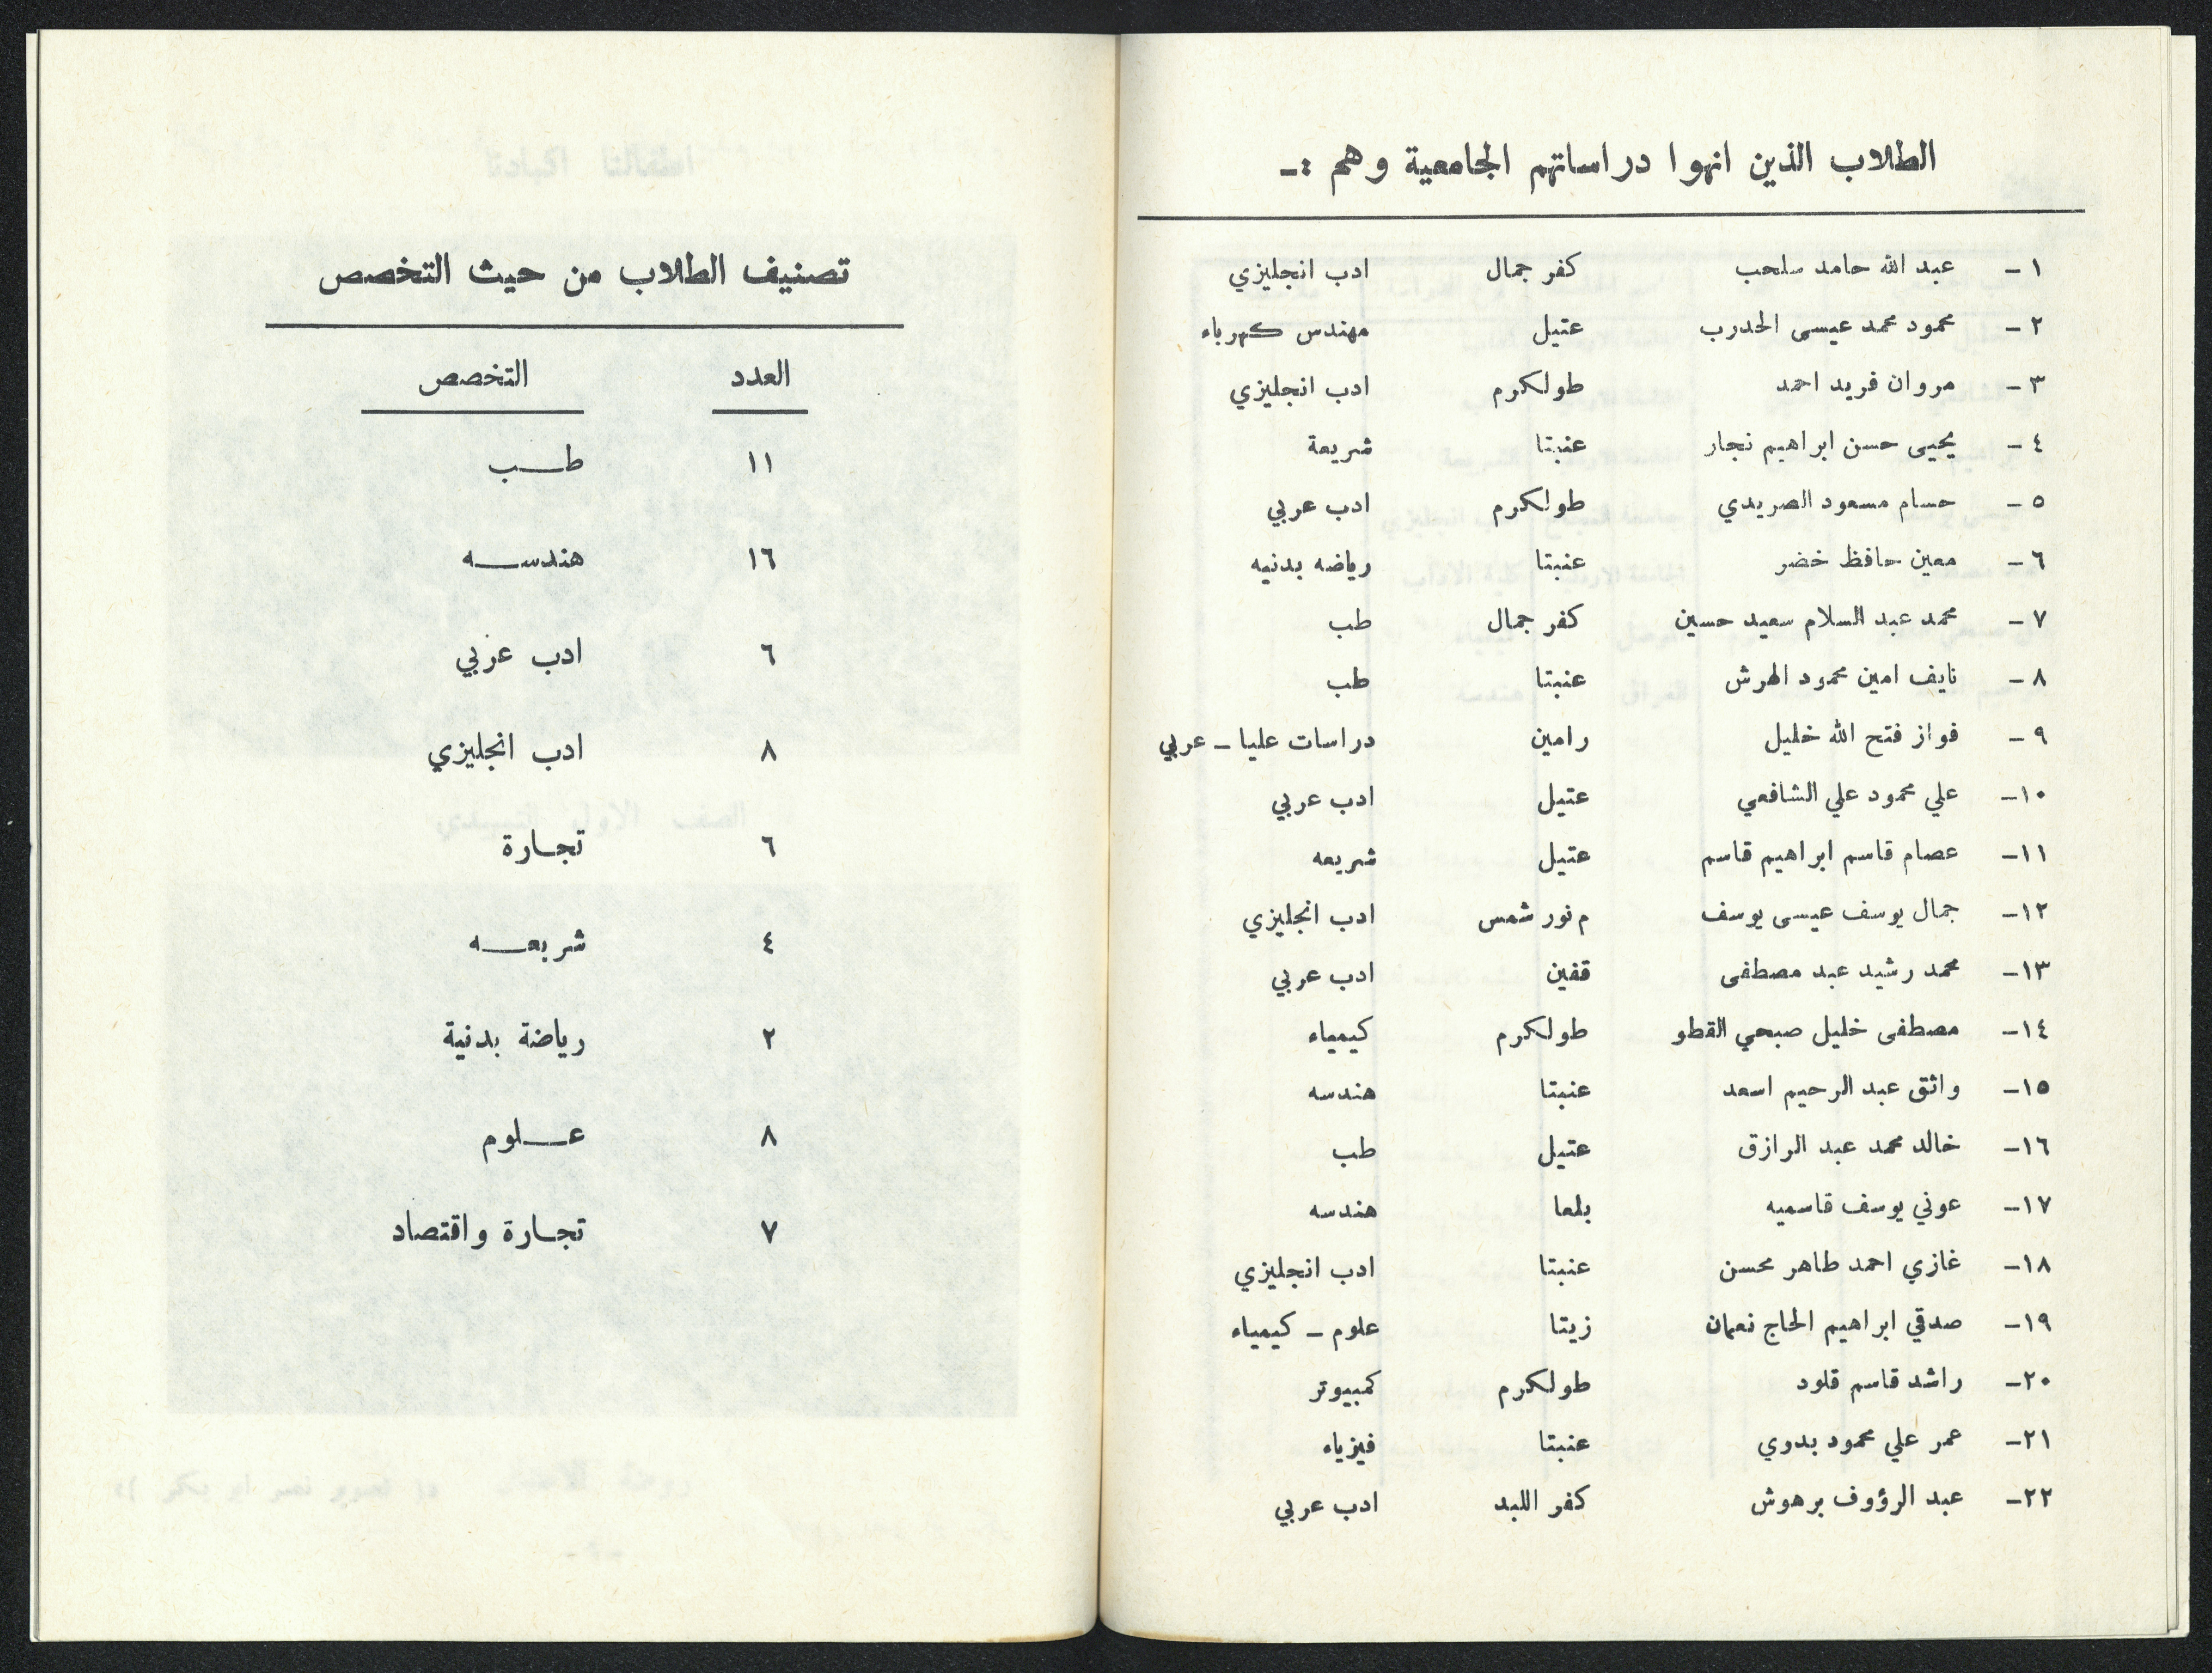 الطلاب الذين انهوا دراساتهم الجامعية وهم :ـ
١ـ عبد الله حامد سلحب كفر جمال ادب انجليزي
٢ـ محمود محمد عيسى الحدرب عتيل مهندس كهرباء
٣ـ مروان فريد احمد طولكرم ادب انجليزي
٤ـ يحيى حسن ابراهيم نجار عنبتا شريعة
٥ـ حسام مسعود الصريدي طولكرم ادب عربي
٦ـ معين حافظ خضر عنبتا رياضه بدنيه
٧ـ محمد عبد السلام سعيد حسين كفر جمال طب
٨ـ نايف امين محمود الهرش عنبتا طب
٩ـ فواز فتح الله خليل رامين دراسات عليا ـ عربي
١٠ـ علي محمود علي الشافعي عتيل ادب عربي
١١ـ عصام قاسم ابراهيم قاسم عتيل شريعه
١٢ـ جمال يوسف عيسى يوسف م نور شمس ادب انجليزي
١٣ـ محمد رشيد عبد مصطفى قفين ادب عربي
١٤ـ مصطفى خليل صبحي القطو طولكرم كيمياء
١٥ـ واثق عبد الرحيم اسعد عنبتا هندسه
١٦ـ خالد محمد عبد الرازق عتيل طب
١٧ـ عوني يوسف قاسميه بلعا هندسه
١٨ـ غازي احمد طاهر محسن عنبتا ادب انجليزي
١٩ـ صدقي ابراهيم الحاج نعمان زيتا علوم ـ كيمياء
٢٠ـ راشد قاسم قلود طولكرم كمبيوتر
٢١ـ عمر علي محمود بدوي عنبتا فيزياء
٢٢ـ عبد الرؤوف برهوش كفر اللبد ادب عربي
تصنيف الطلاب من حيث التخصص
العدد التخصص
١١ طـــب
١٦ هندســـه
٦ ادب عربي
٨ ادب انجليزي
٦ تجـارة
٤ شريعـــه
٢ رياضة بدنية
٨ عـــلوم
٧ تجـارة واقتصاد